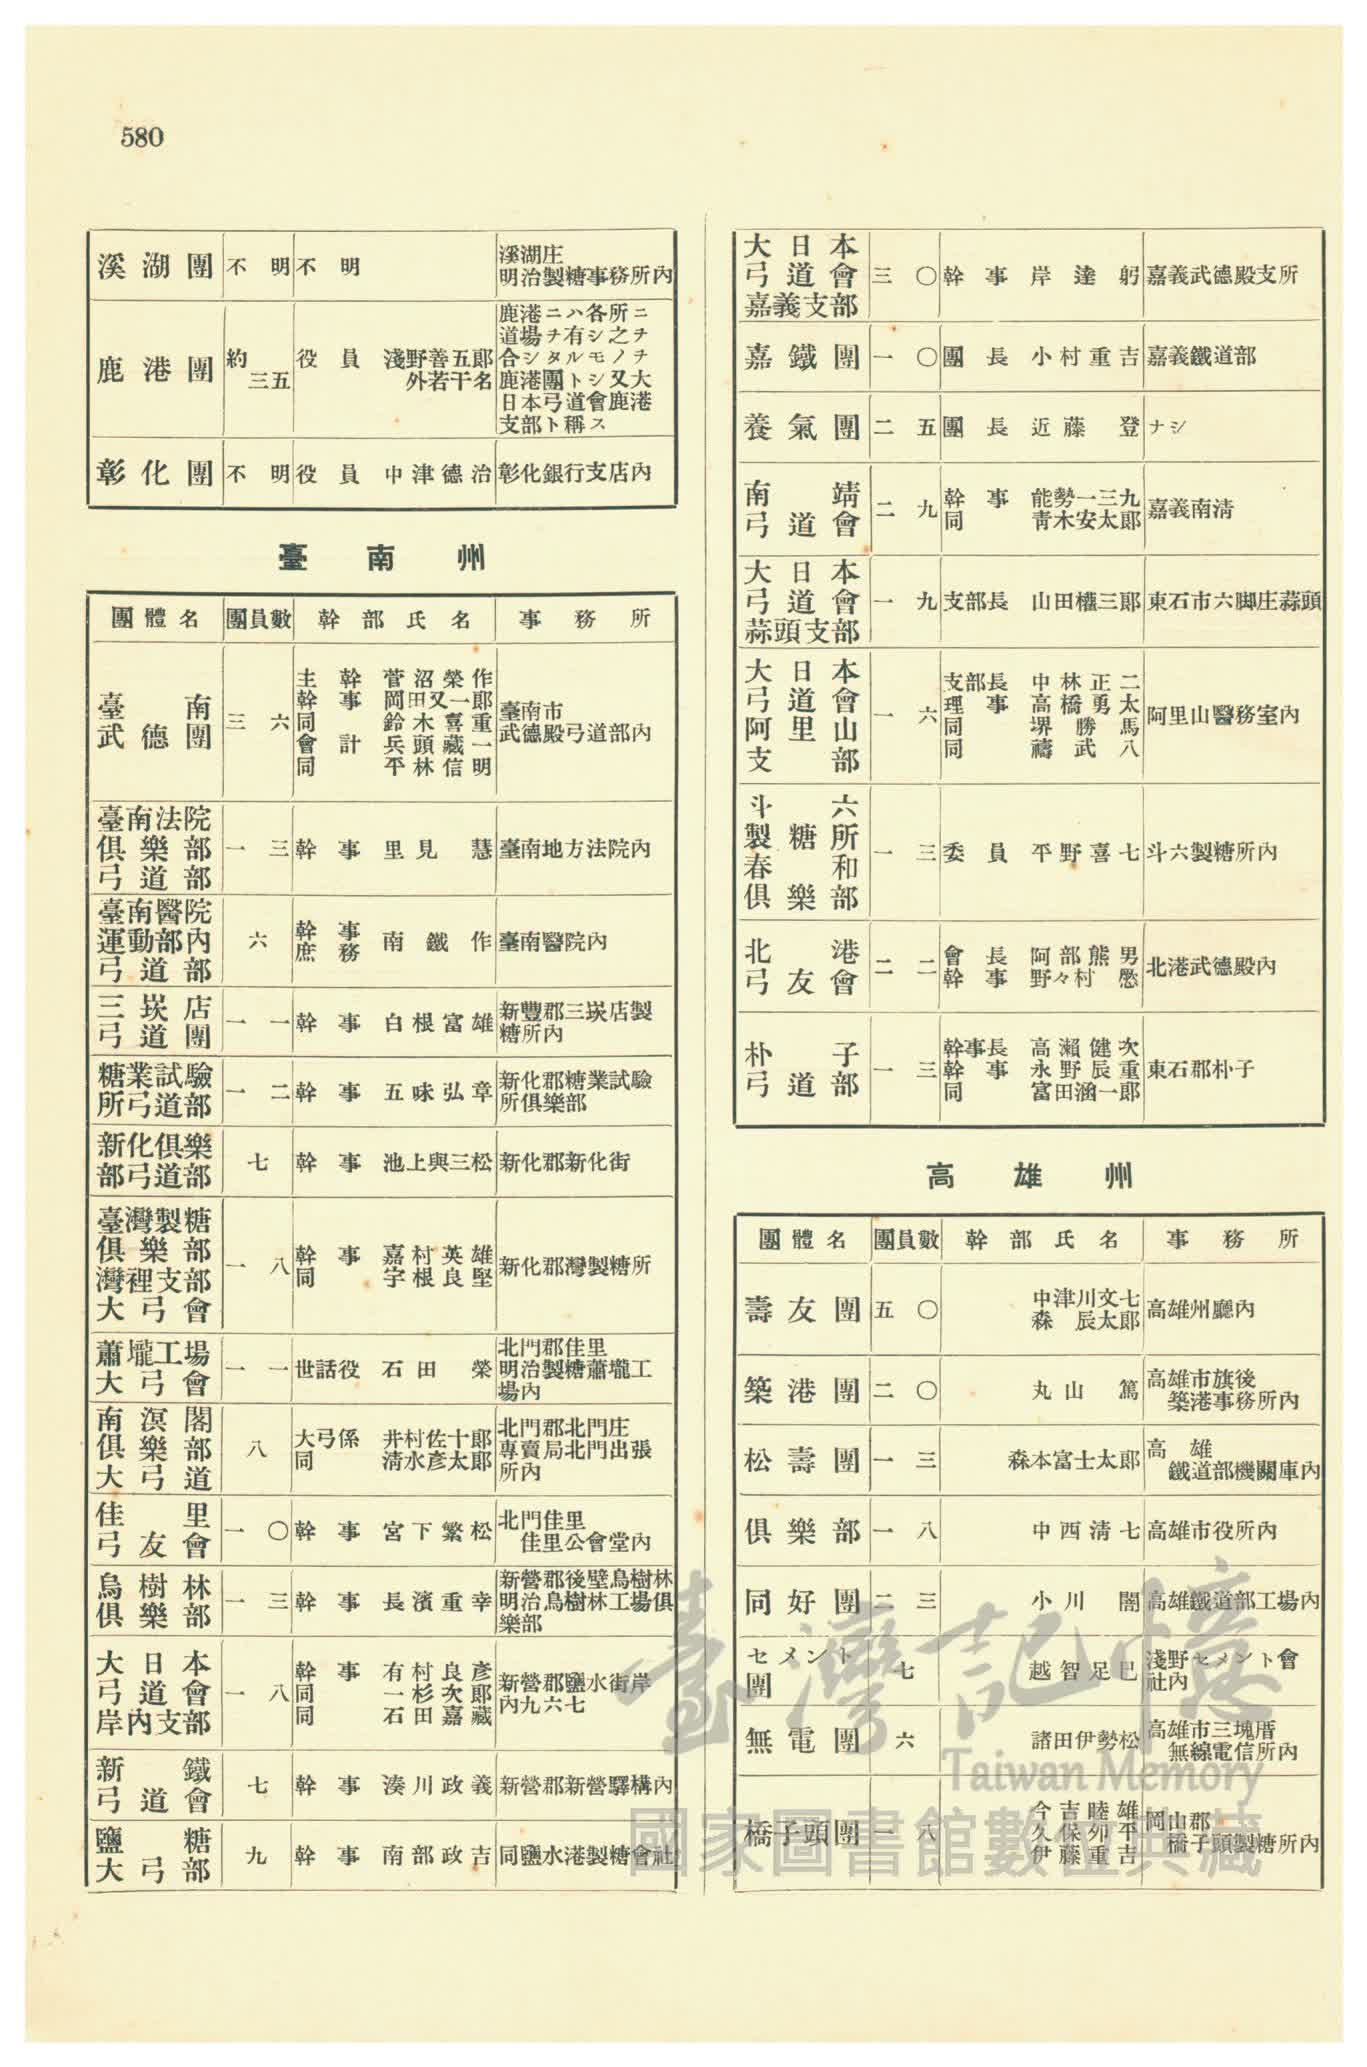 580
溪湖團 不明 不明 溪湖庄
明治製糖事務所內
鹿港團 約三五 役員 淺野善五郞
外若干名
鹿港ニハ各所ニ
道場ヲ有シ之ヲ
合シタルモノヲ
鹿港團トシ又大
日本弓道會鹿港
支部ト稱ス
彰化團 不明 役員 中津德治 彰化銀行支店內
臺南州
團體名 團員數 幹部氏名 事務所
臺南
武德團
三六
主幹 菅沼榮作
幹事 岡田又一郞
同 鈴木喜重
會計 兵頭藏一
同 平林信明
臺南市
武德殿弓道部內
臺南法院
俱樂部
弓道部
一三 幹事 里見慧 臺南地方法院內
臺南醫院
運動部內
弓道部
六
幹事
庶務
南鐵作 臺南醫院內
三崁店
弓道團
一一 幹事 白根富雄 新豐郡三崁店製
糖所內
糖業試驗
所弓道部
一二 幹事 五味弘章 新化郡糖業試驗
所俱樂部
新化俱樂
部弓道部
七 幹事 池上與三松 新化郡新化街
臺灣製糖
俱樂部
灣裡支部
大弓會
一八
幹事 嘉村英雄
同 宇根良堅
新化郡灣製糖所
蕭壠工場
大弓會
一一 世話役 石田榮
北門郡佳里
明治製糖蕭壠工
場內
南溟閣
俱樂部
大弓道
八
大弓係 井村佐十郞
同 淸水彥太郞
北門郡北門庄
專賣局北門出張
所內
佳里
弓友會
一〇 幹事 宮下繁松
北門佳里
佳里公會堂內
烏樹林
俱樂部
一三 幹事 長濱重幸
新營郡後壁烏樹林
明治烏樹林工場俱
樂部
大日本
弓道會
岸內支部
一八
幹事 有村良彥
同 一杉次郞
同 石田嘉藏
新營郡鹽水街岸
內九六七
新鐵
弓道會
七 幹事 湊川政義 新營郡新營驛構內
鹽糖
大弓部
九 幹事 南部政吉 同鹽水港製糖會社
大日本
弓道會
嘉義支部
三〇 幹事 岸達躬 嘉義武德殿支所
嘉鐵團 一〇 團長 小村重吉 嘉義鐵道部
養氣團 二五 團長 近藤登 ナシ
南靖
弓道會
二九
幹事 能勢一三九
同 靑木安太郞
嘉義南淸
大日本
弓道會
蒜頭支部
一九 支部長 山田權三郞 東石市六脚庄蒜頭
大日本
弓道會
阿里山
支部
一六
支部長 中林正二
理事 高橋勇太
同 堺勝馬
同 禱武八
阿里山醫務室內
斗六
製糖所
春和
俱樂部
一三 委員 平野喜七 斗六製糖所內
北港
弓友會
二二
會長 阿部熊男
幹事 野々村愍
北港武德殿內
朴子
弓道部
一三
幹事長 高瀨健次
幹事 永野辰重
同 富田涵一郞
東石郡朴子
高雄州
團體名 團員數 幹部氏名 事務所
壽友團 五〇
中津川文七
森辰太郞
高雄州廳內
築港團 二〇 丸山篤
高雄市旗後
築港事務所內
松壽團 一三 森本富士太郞
高雄
鐵道部機關庫內
俱樂部 一八 中西淸七 高雄市役所內
同好團 二三 小川闇 高雄鐵道部工場內
セメント
團
七 越智足巳
淺野セメント會
社內
無電團 六 諸田伊勢松
高雄市三塊厝
無線電信所內
橋子頭團 一八
今吉睦雄
久保夘平
伊藤重吉
岡山郡
橋子頭製糖所內
臺灣記憶
Taiwan Memory
國家圖書館數位典藏